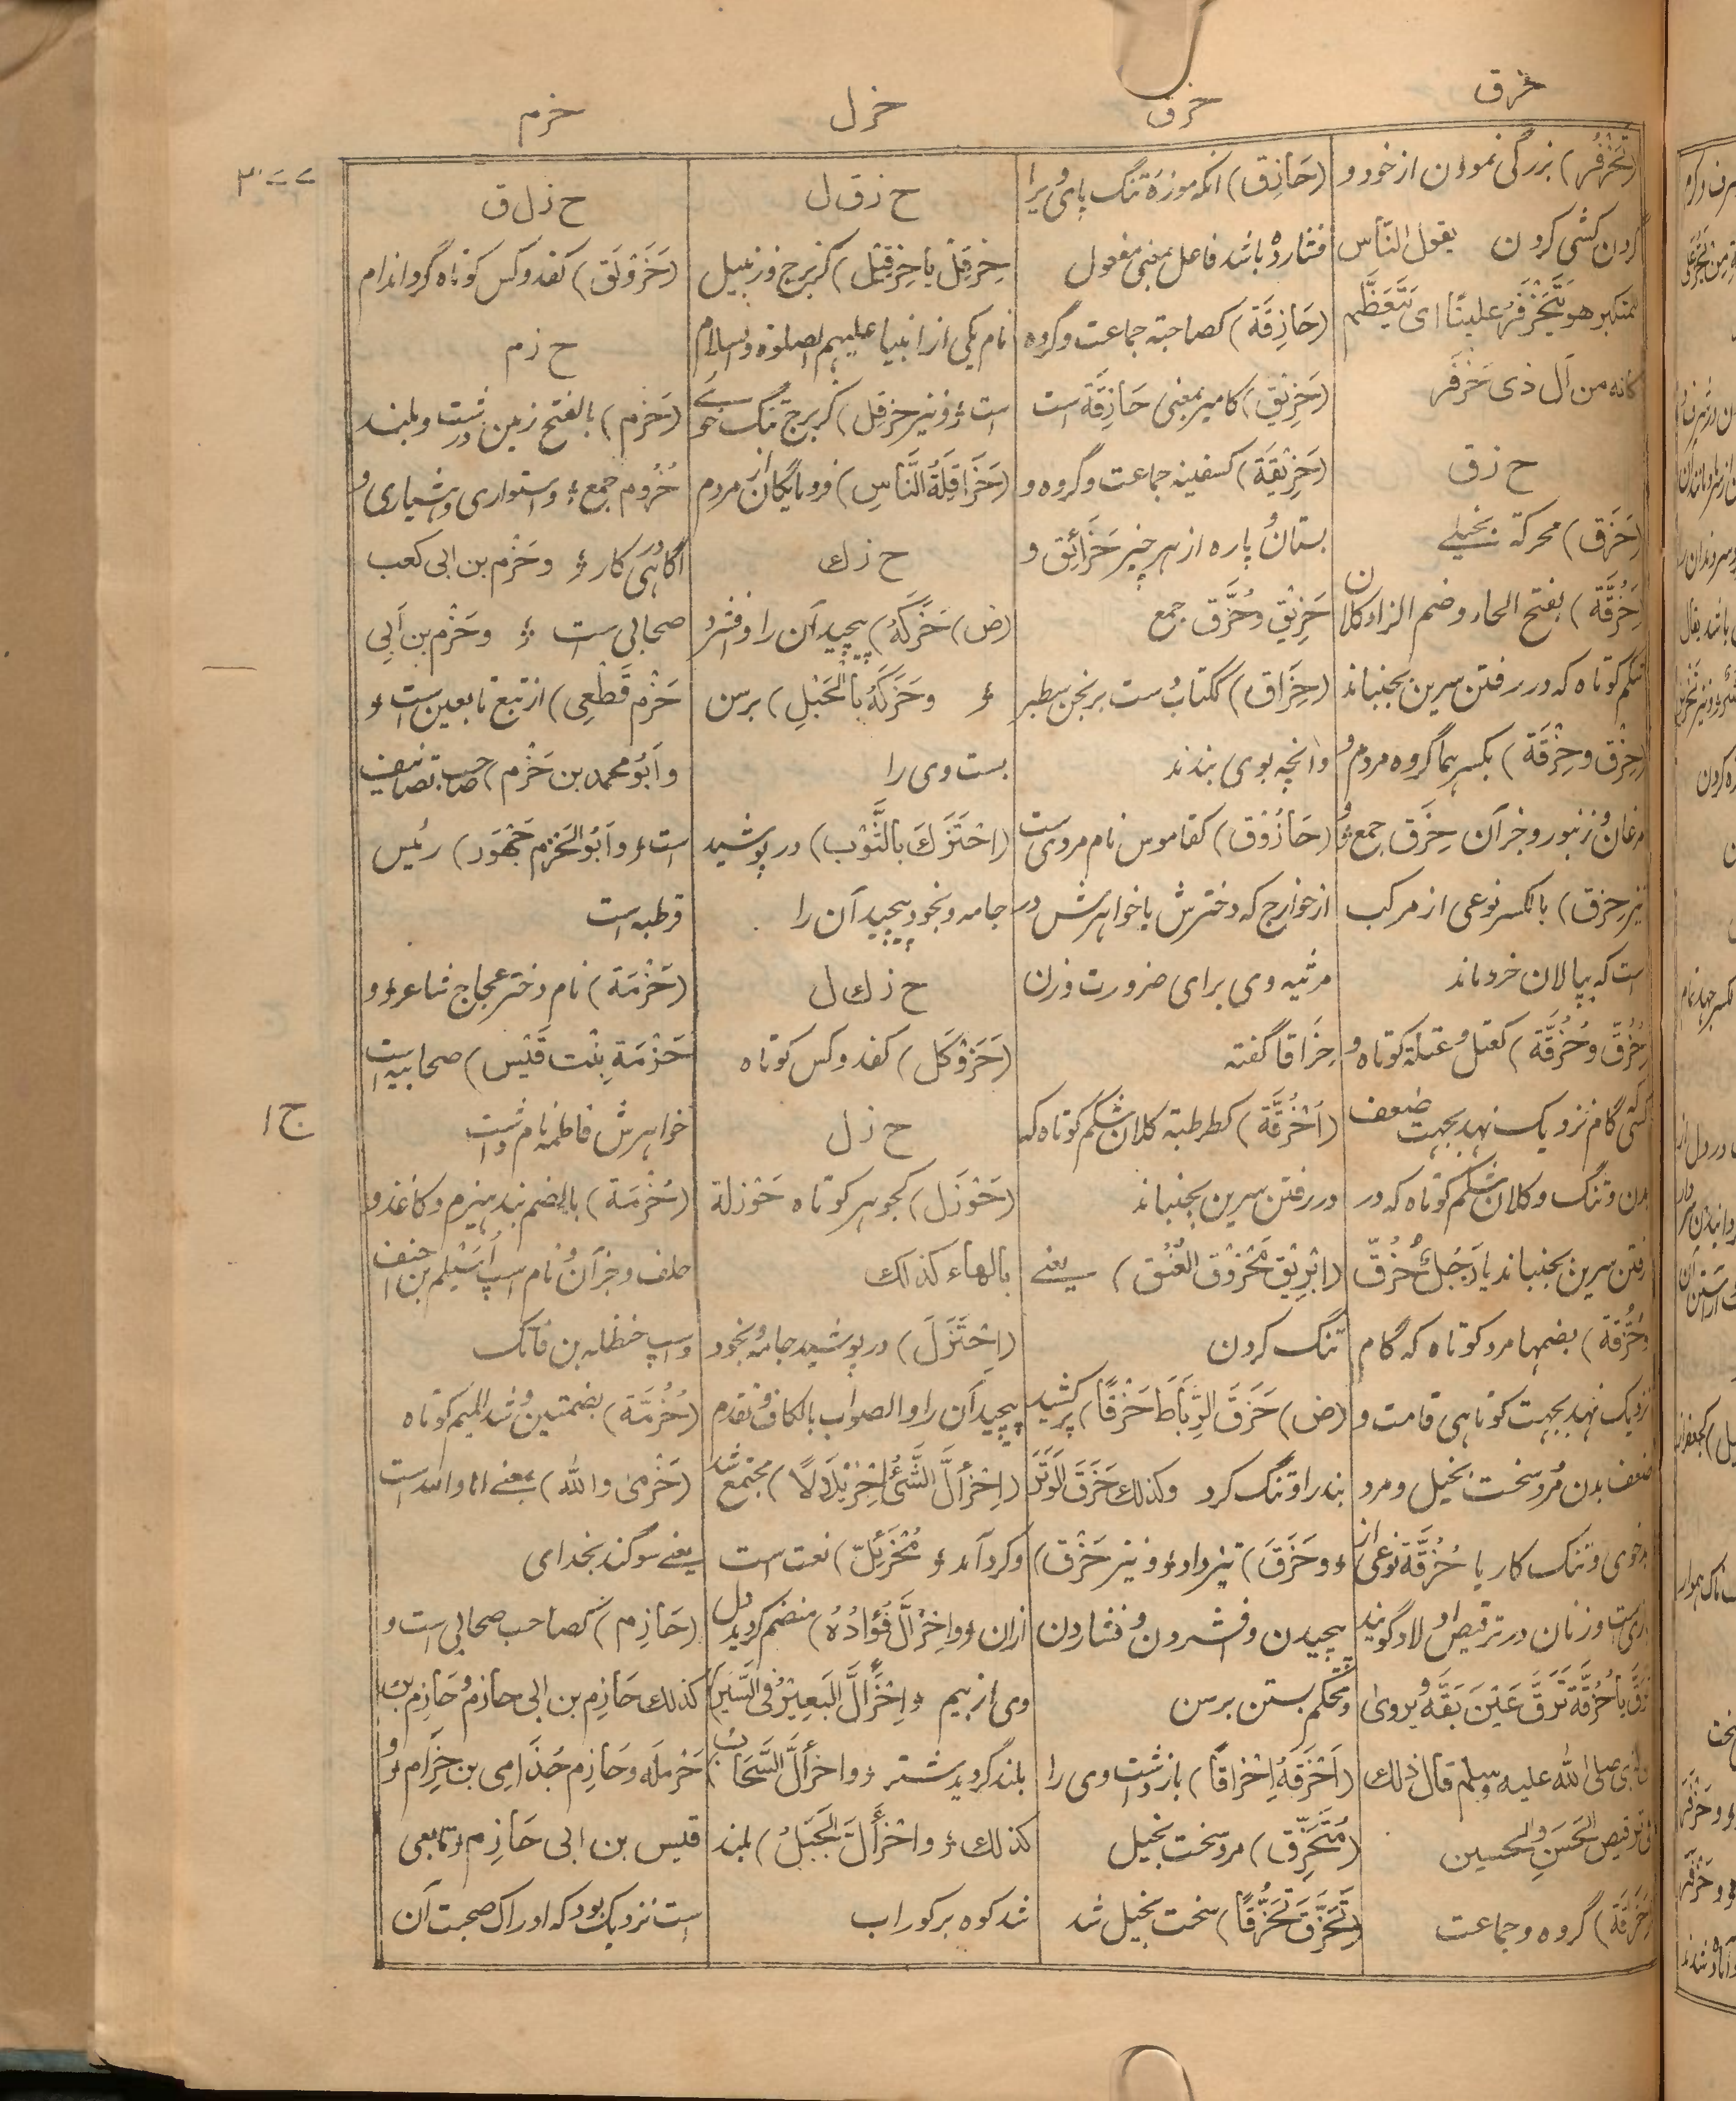 حزق
حزق
حزل
حزم
(تَحَزْفُر) بزرگی نمودن از خود و
گردن کشی کردن یقول الناس
للمتکبر هو یَتَحَزْفَرُ علینا ای یَتَعَظَّم
کانه من آل ذی حَزْفَر
ح ز ق
(حَزَق) محرکة بخیلے
(حَزُقَّة) بفتح الحاء وضم الزاء کلان
شکم کوتاه که در رفتن سرین بجنباند
(حِزْق و حِزْقَة) بکسرهما گروه مردم و
مرغان و زنبور و جز آن حِزَق جمع و
نیز حِزق) بالکسر نوعی از مرکب
است که بپالان خرد ماند
(حُزُقّ و حُزُقَّة) کعتل و عتلة کوتاه و
که گام نزدیک نهد بجهت ضعف
بدن و تنگ و کلان شکم کوتاه که در
رفتن سرین بجنباند یا رَجُلٌ حُزُقّ
و حُزُقَّة) بضمهما مرد کوتاه که گام
نزدیک نهد بجهت کوتاهی قامت و
ضعف بدن و مرد سخت بخیل و مرد
بدخوی و تنک کار یا حُزُقَّة نوعی از
بازی ست و زنان در ترقیص اولاد گویند
حُزُقَّة حُزُقَّة تَرَقَّ عَیْنَ بَقَّه و یروی
ان النبی صلی الله علیه وسلم قال ذلک
فی ترقیص الحَسَنِ والحسین
(حَزِقَة) گروه و جماعت
(حَازِق) آنکه موزهٔ تنگ پای ویرا
فشارده باشد فاعل بمعنی مفعول
(حَازِقَة) کصاحبة جماعت و گروه
(حَزِیْق) کامیر بمعنی حَازِقَة است
(حَزِیْقَة) کسفینه جماعت و گروه و
بستان و پاره از هر چیز حَزَائِق و
حَزِیْق و حُزَّق جمع
(حِزَاق) ککتاب دست برنجن سطبر
و آنچه بوی بندند
(حَازُوْق) کقاموس نام مردی ست
از خوارج که دخترش یا خواهرش در
مرثیه وی برای ضرورت وزن
حِزَاقا گفته
(اُحْزُقَّة) کطرطبة کلان شکم کوتاه که
در رفتن سرین بجنباند
(ابْرِیْق مَحْزُوْق العُنُق) یعنے
تنگ گردن
(ض) حَزَقَ الرِّبَاطَ حَزْقًا) پر کشید
بند را و تنگ کرد وکذلک حَزَقَ الوَتَرَ
و حَزَقَ) تیز داد و نیز حَزْق)
پیچیدن و فشردن و فشاردن
و محکم بستن برسن
(اَحْزَقَهُ اِحْزَاقًا) باز داشت وی را
(مُتَحَزِّق) مرد سخت بخیل
(تَحَزَّقَ تَحَزُّقًا) سخت بخیل شد
ح ز ق ل
حِزْقِل یا حِزْقِیْل) کزبرج و زنبیل
نام یکی از انبیا علیهم الصلوة والسلام
است و نیز حِزقِل) کزبرج تنگ خوے
(حَزَاقِلَةُ النَّاسِ) فرومایگان از مردم
ح ز ك
(ض) حَزَکَهُ) پیچید آن را و فشرد
و حَزَکَهُ بِالْحَبْلِ) برسن
بست وی را
(احْتَزَكَ بالثَّوْب) در پوشید
جامه و بخود پیچید آن را
ح ز ك ل
(حَزَوْکَل) کفدوکس کوتاه
ح ز ل
(حَوْزَل) کجوهر کوتاه حَوْزلة
بالهاء کذلک
(اِحْتَزَلَ) در پوشید جامه و بخود
پیچید آن را والصواب بالکاف و تقدم
(اِحْزَأَلَّ الشَّئُ اِحْزِئْلَالًا) مجتمع شد
و گرد آمد و مُحْزَئِلّ) نعت است
ازان و احْزَأَلَّ فُؤَادُهُ) منضم گردید دل
وی از بیم و اِحْزَأَلَّ البَعِیْرُ فی السَّیْرِ)
بلند گردید شتر و احزأَلَّ السَّحَابُ)
کذلک و احْزَأَلَّ الجَبَلُ) بلند
شد کوه بر کوراب
ح ز ل ق
(حَزَوْلَق) کفدوکس کوتاه گرد اندام
ح ز م
(حَزْم) بالفتح زمین درشت و بلند
حُزُوم جمع و استواری و هشیاری و
آگاهی در کار و حَزْم بن ابی کعب
صحابی ست و حَزْم بن اَبِی
حَزْم قُطَعِی) از تبع تابعین ست و
و اَبُو محمد بن حَزْم) صاحب تصانیف
است و اَبُو الحَزْم جَهْوَر) رئیس
قرطبه است
(حَزْمَة) نام دختر عجاج شاعر و
حَزْمَة بِنْت قَیْس) صحابیه است
خواهرش فاطمه نام داشت
(حُزْمَة) بالضم بند هیزم و کاغذ و
علف و جز آن و نام اسپ اُسَیْلم بن احنف
و اسپ حنظله بن فاتک
(حُزُمَّة) بضمتین و شد المیم کوتاه
(حَزْمیٰ والله) بمعنے اما والله است
یعنے سوگند بخدای
(حَازِم) کصاحب صحابی ست و
کذلك حَازِم بن ابی حازم و حَازِم بن
حَرْمَلَه و حَازِم جُذَامِی بن حِزَام و
قیس بن ابی حَازِم تابعی
است نزدیک بود که ادراک صحبت آن
۳۰۷
ج ۱